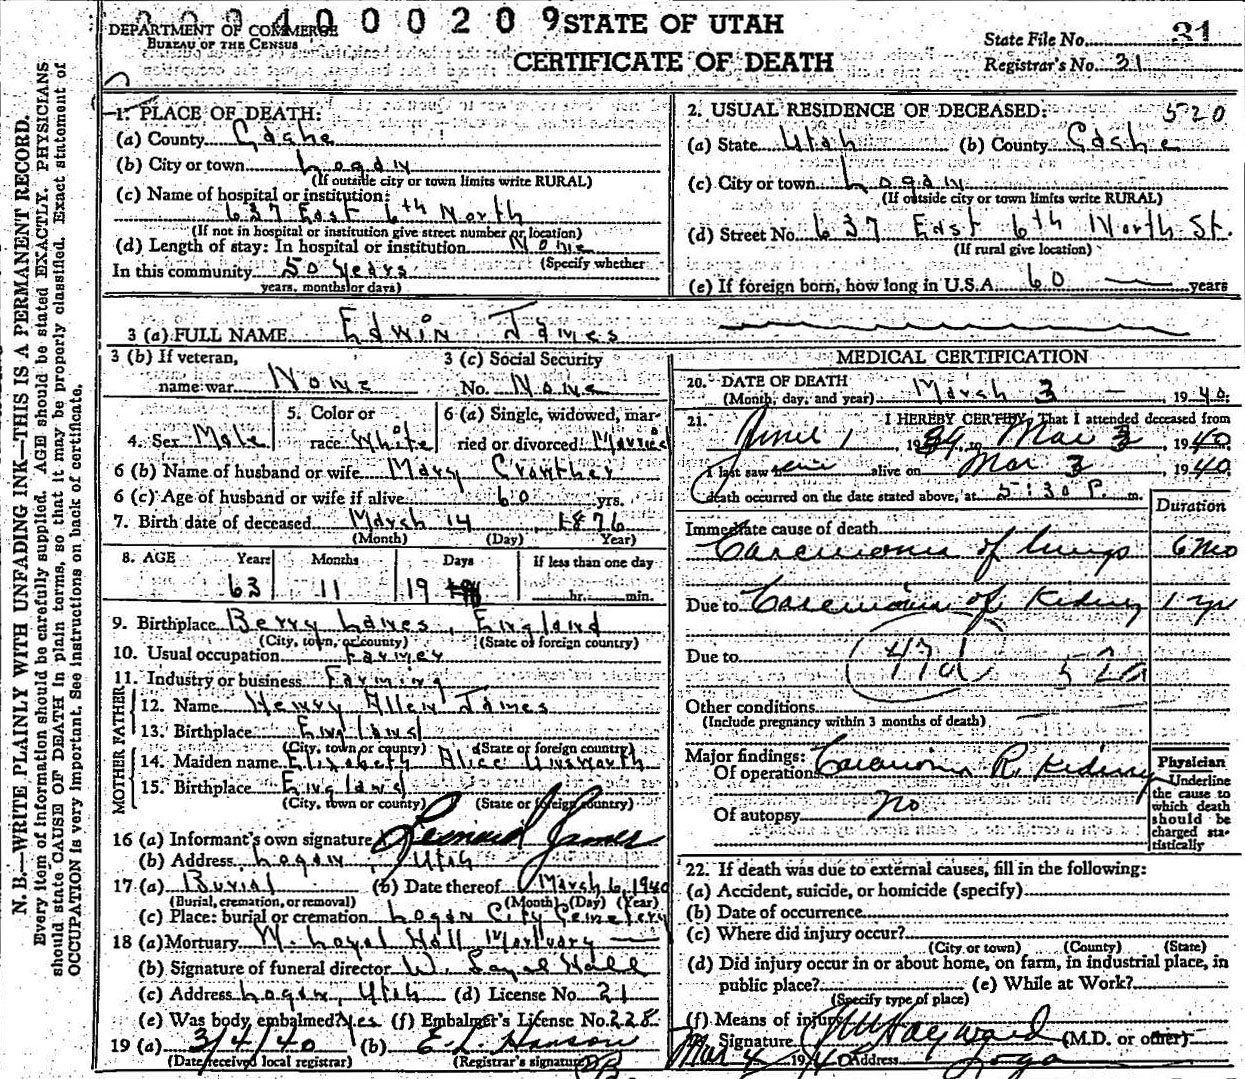 0 0 0 4 0 0 0 2 0 9 STATE OF UTAH
DEPARTMENT OF COMMERCE
BUREAU OF THE CENSUS
CERTIFICATE OF DEATH
State File No. 31
Registrar's No. 31
N. B.—WRITE PLAINLY WITH UNFADING INK—THIS IS A PERMANENT RECORD.
Every item of information should be carefully supplied. AGE should be stated EXACTLY. PHYSICIANS
should state CAUSE OF DEATH in plain terms, so that it may be properly classified. Exact statement of
OCCUPATION is very important. See instructions on back of certificate.
1. PLACE OF DEATH:
(a) County Cache
(b) City or town Logan
(If outside city or town limits write RURAL)
(c) Name of hospital or institution:
637 East 6th North
(If not in hospital or institution give street number or location)
(d) Length of stay: In hospital or institution None
(Specify whether
In this community 50 Years
years, months or days)
2. USUAL RESIDENCE OF DECEASED: 520
(a) State Utah (b) County Cache
(c) City or town Logan
(If outside city or town limits write RURAL)
(d) Street No. 637 East 6th North St.
(If rural give location)
(e) If foreign born, how long in U.S.A. 60 years
3 (a) FULL NAME Edwin James
3 (b) If veteran, name war None
3 (c) Social Security No. None
4. Sex Male
5. Color or race White
6 (a) Single, widowed, married or divorced: Married
6 (b) Name of husband or wife Mary Crowther
6 (c) Age of husband or wife if alive 60 yrs.
7. Birth date of deceased March 14 1876
(Month) (Day) Year)
8. AGE Years Months Days If less than one day
63 11 19 hr. min.
9. Birthplace Berry Lanes, England
(City, town, or county) (State or foreign country)
10. Usual occupation Farmer
11. Industry or business Farming
FATHER
12. Name Henry Allen James
13. Birthplace England
(City, town or county) (State or foreign country)
MOTHER
14. Maiden name Elizabeth Alice Unsworth
15. Birthplace England
(City, town or county) (State or foreign country)
16 (a) Informant's own signature Leonard James
(b) Address Logan, Utah
17 (a) Burial (b) Date thereof March 6, 1940
(Burial, cremation, or removal) (Month) (Day) (Year)
(c) Place: burial or cremation Logan City Cemetery
18 (a) Mortuary W. Loyal Hall Mortuary
(b) Signature of funeral director W. Loyal Hall
(c) Address Logan, Utah (d) License No. 21
(e) Was body embalmed? Yes (f) Embalmer's License No. 228
19 (a) 3/4/40 (b) E. L. Hanson
(Date received local registrar) (Registrar's signature)
MEDICAL CERTIFICATION
20. DATE OF DEATH
(Month, day, and year) March 3 , 1940.
21. I HEREBY CERTIFY, That I attended deceased from
June 1, 1939 to Mar 3, 1940
I last saw alive on Mar 3, 1940
death occurred on the date stated above, at 5:30 P. m.
Duration
Immediate cause of death
Carcinoma of lungs 6 mo
Due to Carcinoma of Kidney 1 yr
Due to 47d 52a
Other conditions
(Include pregnancy within 3 months of death)
Major findings:
Of operation Carcinoma R. Kidney
Of autopsy No
Physician
Underline
the cause to
which death
should be
charged sta-
tistically
22. If death was due to external causes, fill in the following:
(a) Accident, suicide, or homicide (specify)
(b) Date of occurrence
(c) Where did injury occur?
(City or town) (County) (State)
(d) Did injury occur in or about home, on farm, in industrial place, in
public place? (e) While at Work?
(Specify type of place)
(f) Means of injury
Signature Hayward (M.D. or other)
Mar 4 1940 Address Logan